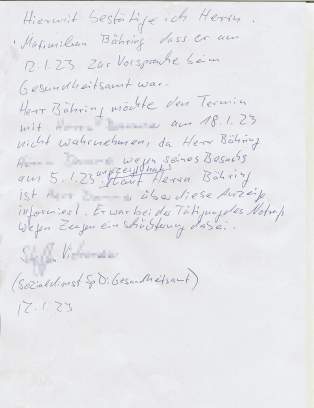 Hiermit bestätige ich Herrn
Maximilian Böhring dass er am
12.1.23 zur Vorsprache beim
Gesundheitsamt war.
Herr Böhring möchte den Termin
mit am 18.1.23
nicht wahrnehmen, da Herr Böhring
wegen seines Besuchs
am 5.1.23 angezeigt hat laut Herrn Böhring
ist über diese Anzeige
informiert. Er war bei der Tätigung des Notrufs
wegen Zeugen
(Sozialdienst SpDi Gesundheitsamt)
12.1.23